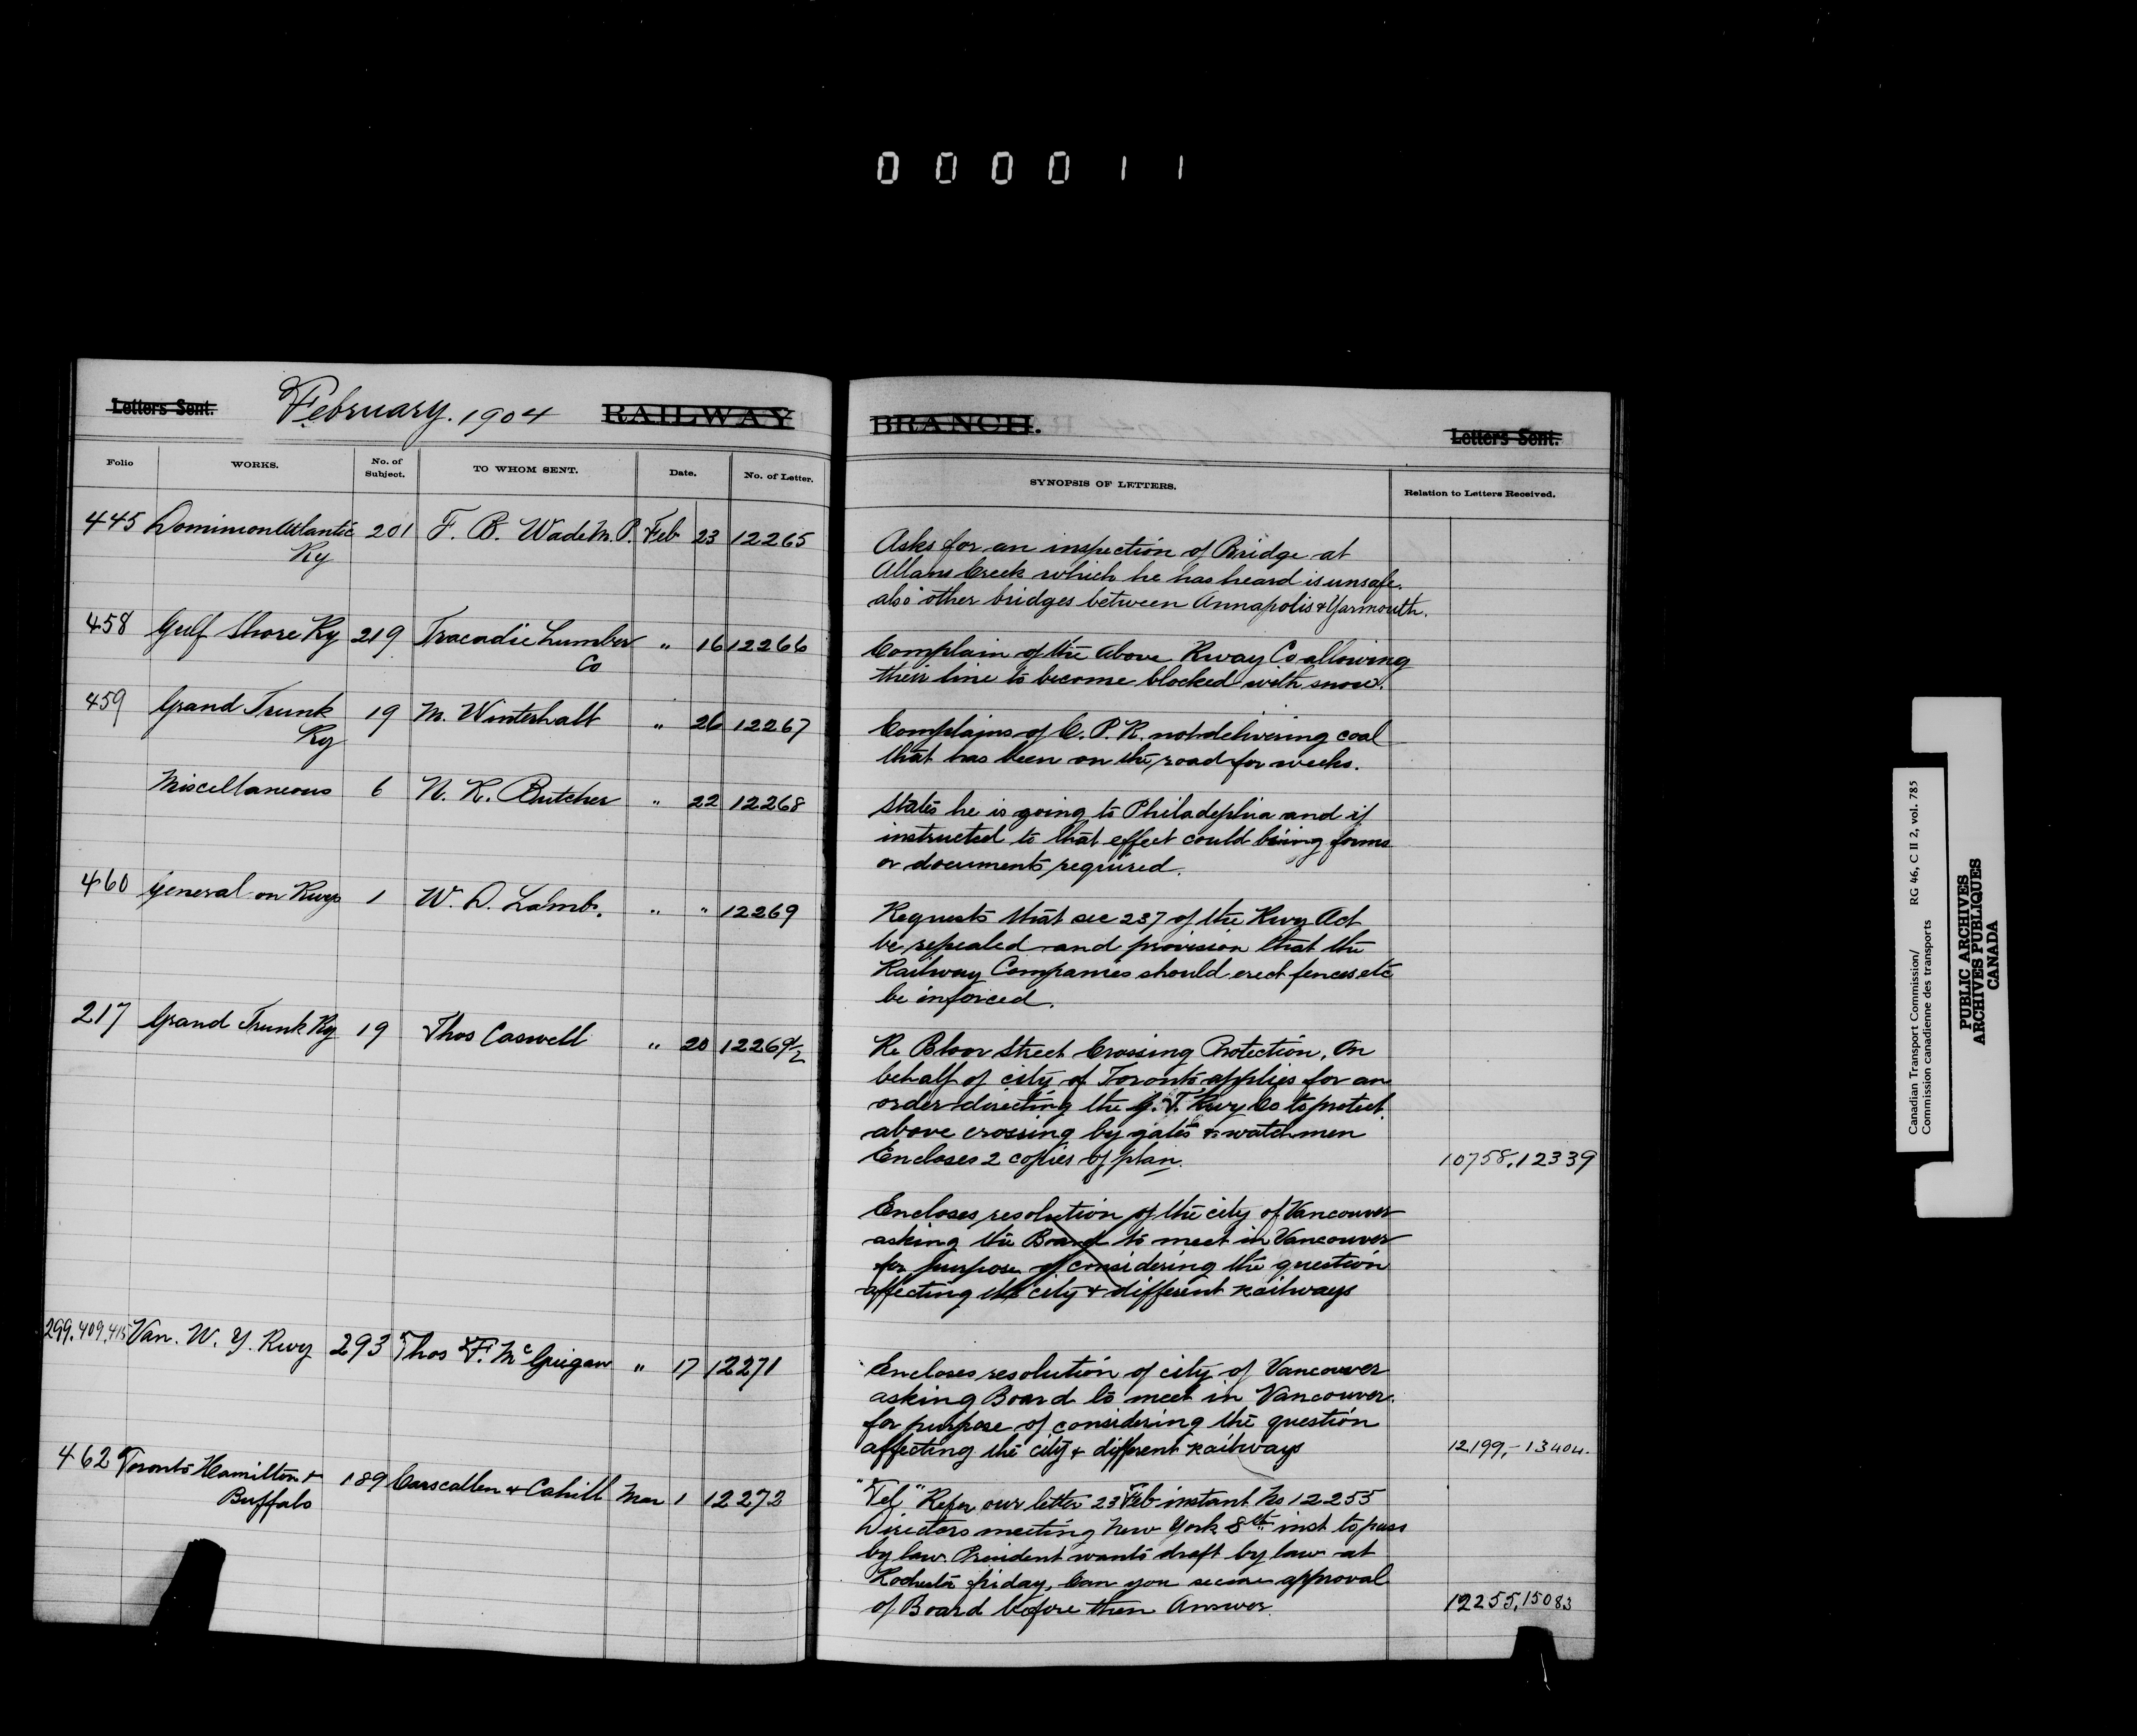 000011
Letters Sent. February. 1904 RAILWAY BRANCH. Letters Sent.
Folio WORKS. No. of Subject. TO WHOM SENT. Date. No. of Letter. SYNOPSIS OF LETTERS. Relation to Letters Received.
445 Dominion Atlantic Ry 201 F. B. Wade M.P. Feb 23 12265
Asks for an inspection of Bridge at
Allans Creek which he has heard is unsafe.
also other bridges between Annapolis & Yarmouth.
458 Gulf Shore Ry 219 Tracadie Lumber Co " 16 12266
Complain of the above Rway Co allowing
their line to become blocked with snow.
459 Grand Trunk Ry 19 M. Winterhalt " 26 12267
Complains of C. P. R. not delivering coal
that has been on the road for weeks.
Miscellaneous 6 N. K. Butcher " 22 12268
States he is going to Philadephia and if
instructed to that effect could bring forms
or documents required.
460 General on Rwys 1 W. D. Lamb. " " 12269
Requests that sec 237 of the Rwy Act
be repealed and provision that the
Railway Companies should erect fences etc
be inforced.
217 Grand Trunk Ry 19 Thos Caswell " 20 12269 1/2
Re Bloor Street Crossing Protection, On
behalf of city of Toronto applies for an
order directing the G. T. Rwy Co to protect
above crossing by gates & watchmen
Encloses 2 copies of plan. 10758, 12339
Encloses resolution of the city of Vancouver
asking the Board to meet in Vancouver
for purpose of considering the question
affecting the city & different railways
299, 409, 415 Van. W. Y. Rwy 293 Thos F. McGuigan " 17 12271
Encloses resolution of city of Vancouver
asking Board to meet in Vancouver.
for purpose of considering the question
affecting the city & different railways 12199,- 13404.
462 Toronto Hamilton & Buffalo 189 Carscallen & Cahill Mar 1 12272
"Tel" Refer our letter 23 Feb instant No 12255
Directors meeting New York 8th inst to pass
by law. President wants draft by law at
Rochester friday, Can you secure approval
of Board before then Answer. 12255, 15083
Canadian Transport Commission/ RG 46, C II 2, vol. 785
Commission canadienne des transports
PUBLIC ARCHIVES
ARCHIVES PUBLIQUES
CANADA